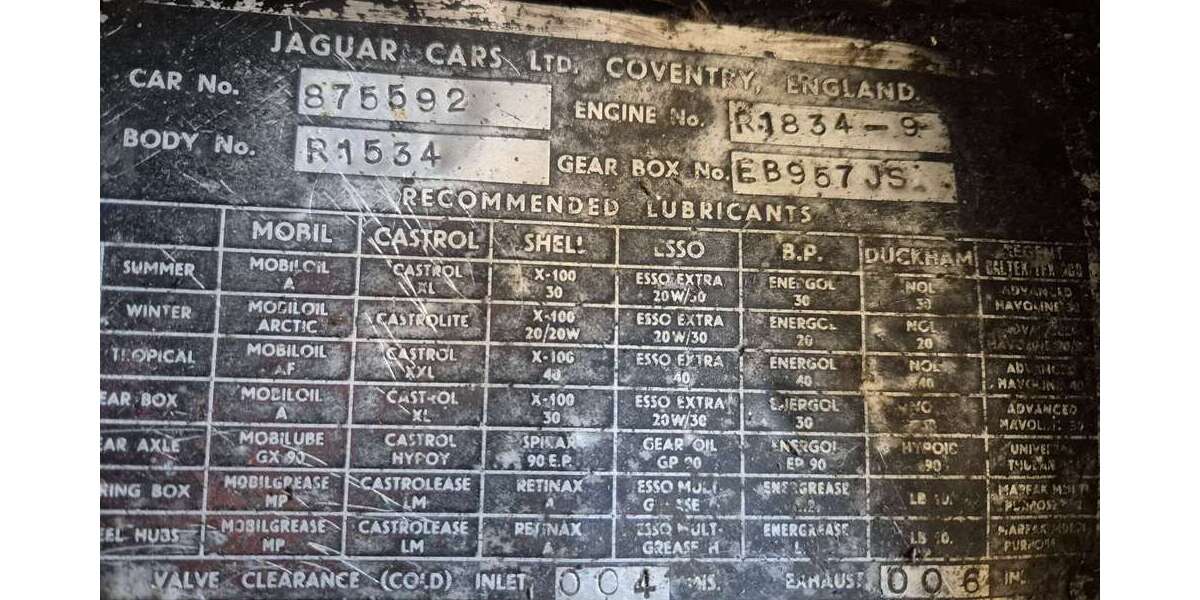 JAGUAR CARS LTD. COVENTRY, ENGLAND.
CAR No. 875592 ENGINE No. R1834-9
BODY No. R1534 GEAR BOX No. EB957JS
RECOMMENDED LUBRICANTS
MOBIL CASTROL SHELL ESSO B.P. DUCKHAM REGENT
SUMMER MOBILOIL A CASTROL XL X-100 30 ESSO EXTRA 20W/30 ENERGOL 30 NOL 30 ADVANCED HAVOLINE 30
WINTER MOBILOIL ARCTIC CASTROLITE X-100 20/20W ESSO EXTRA 20W/30 ENERGOL 20 NOL 20
TROPICAL MOBILOIL AF CASTROL XXL X-100 40 ESSO EXTRA 40 ENERGOL 40 NOL 40 ADVANCED HAVOLINE 40
EAR BOX MOBILOIL A CASTROL XL X-100 30 ESSO EXTRA 20W/30 ENERGOL 30 NOL ADVANCED HAVOLINE 30
EAR AXLE MOBILUBE GX 90 CASTROL HYPOY SPIRAX 90 E.P. GEAR OIL GP 90 ENERGOL EP 90 HYPOID 90 UNIVERSAL THUBAN
RING BOX MOBILGREASE MP CASTROLEASE LM RETINAX A ESSO MULTI GREASE ENERGREASE LB 10. MARFAK MULTI PURPOSE
EEL HUBS MOBILGREASE MP CASTROLEASE LM RETINAX A ESSO MULT- GREASE H ENERGREASE LB 10 MARFAK MULTI PURPOSE
VALVE CLEARANCE (COLD) INLET 004 INS. EXHAUST 006 IN.